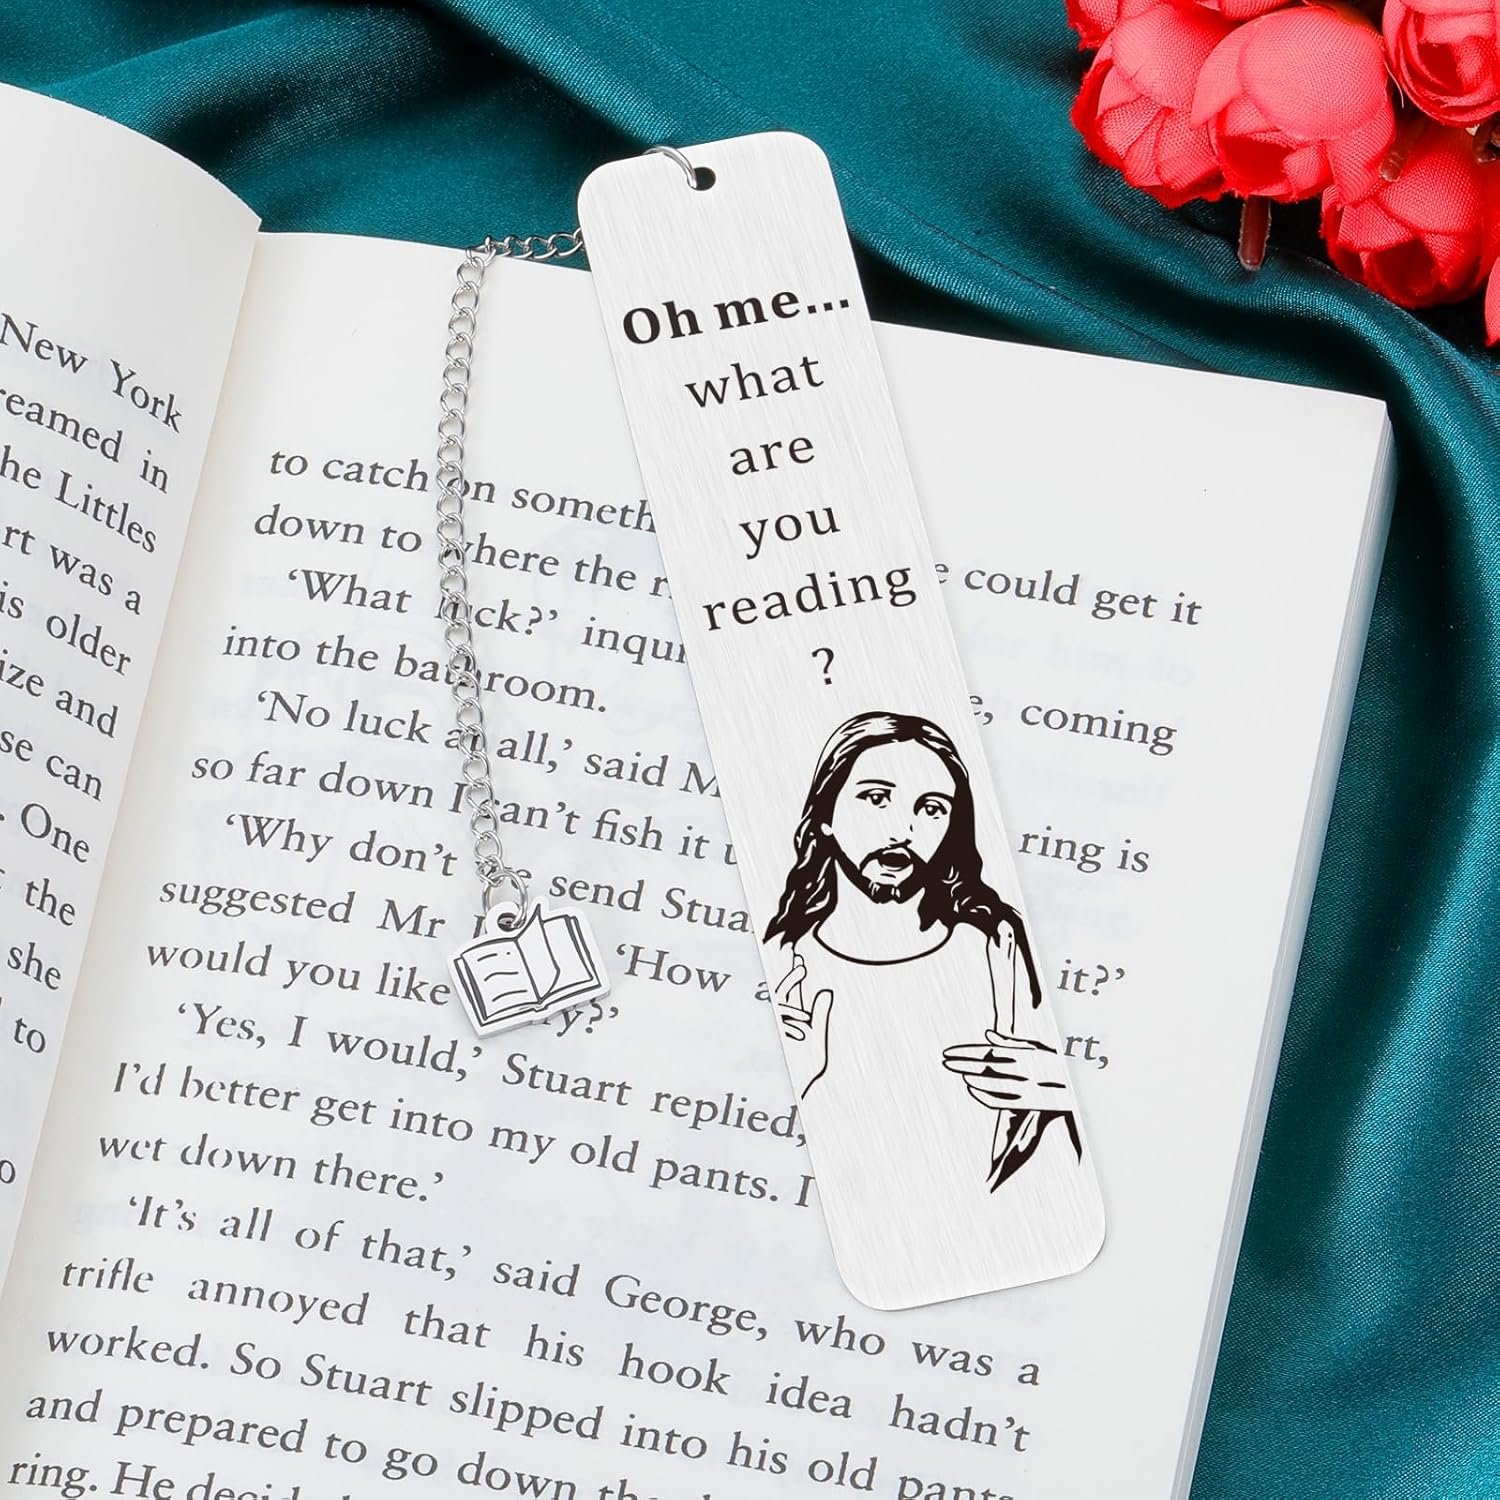 New York
reamed in
he Littles
rt was a
is older
ize and
se can
. One
the
she
to
o
Oh me...
what
are
you
reading
?
to catch on someth
down to where the r e could get it
‘What luck?’ inqui
into the bathroom. e, coming
‘No luck at all,’ said M
so far down I can’t fish it u ring is
‘Why don’t we send Stua
suggested Mr ‘How a it?’
would you like y?’
‘Yes, I would,’ Stuart replied, rt,
I’d better get into my old pants. I
wet down there.’
‘It’s all of that,’ said George, who was a
trifle annoyed that his hook idea hadn’t
worked. So Stuart slipped into his old pants
and prepared to go down the
ring. He decid